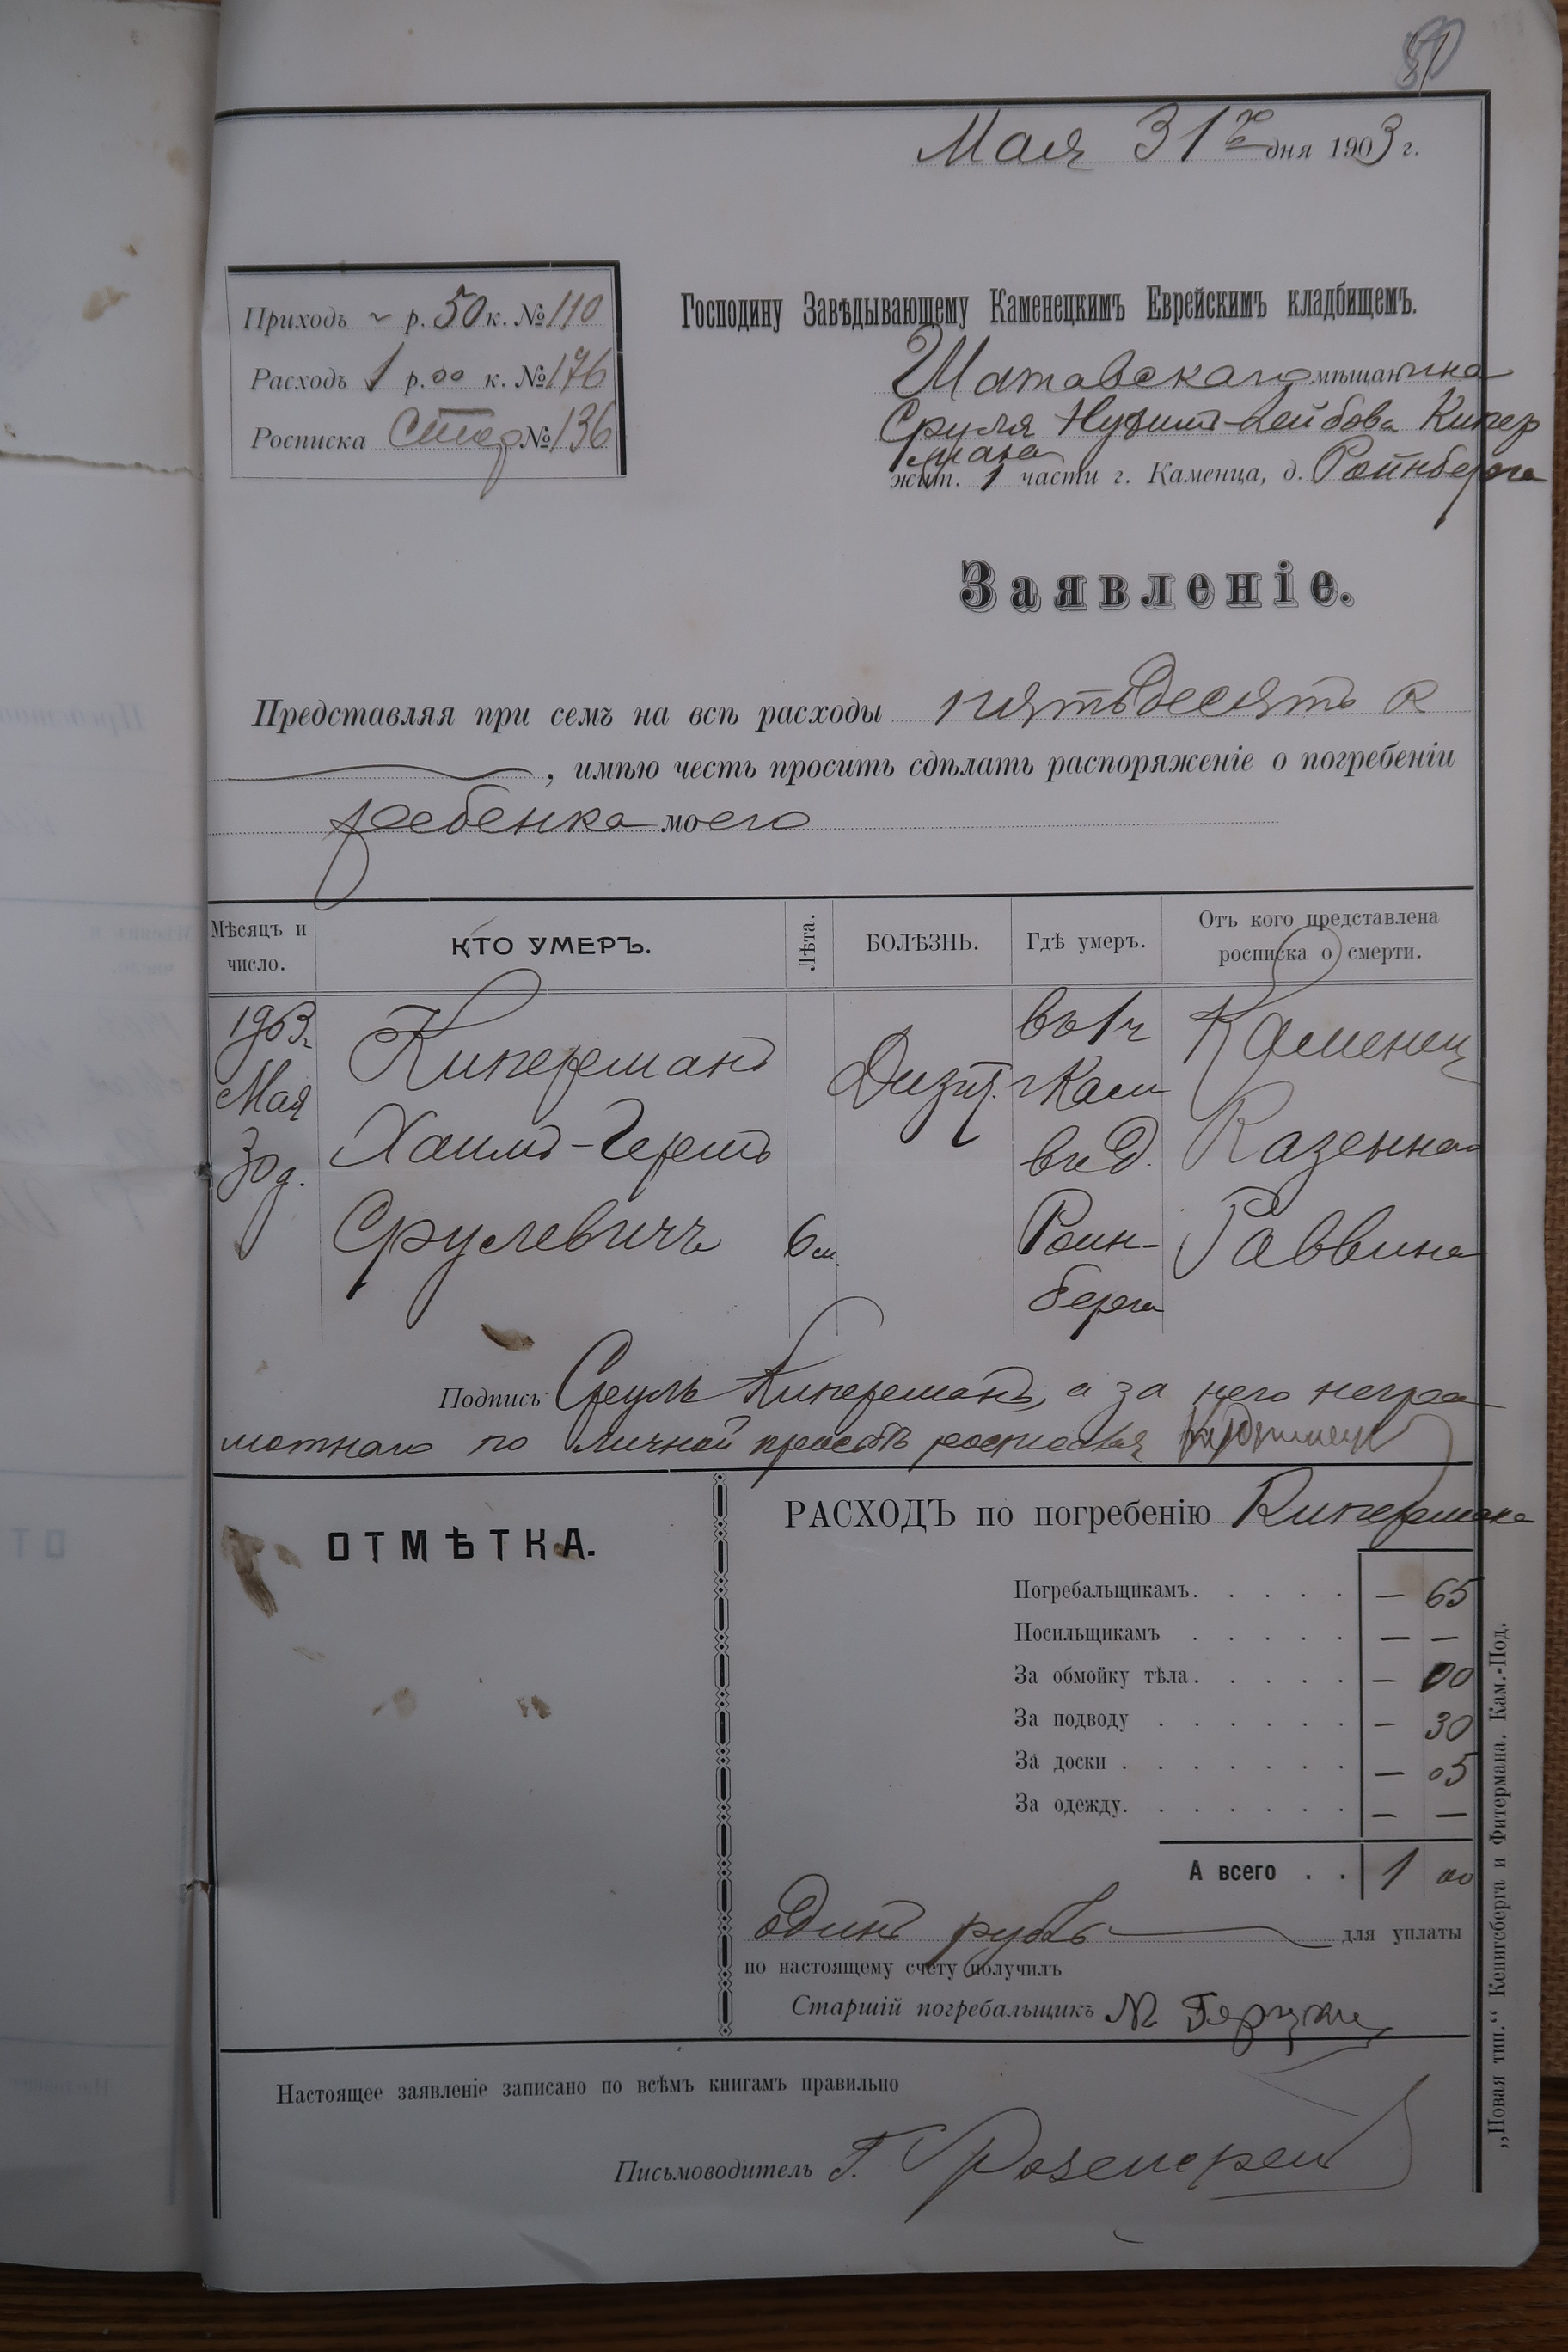 81
Мая 31го дня 1903 г.
Приходъ ~ р. 50 к. № 110
Расходъ 1 р. 00 к. № 176
Росписка Стар № 136
Господину Завѣдывающему Каменецкимъ Еврейскимъ кладбищемъ.
Шатавскаго мѣщанина
Сруля Нухимъ-Лейбова Кипер
мана
жит. 1 части г. Каменца, д. Ройнберга
Заявленіе.
Представляя при семъ на всѣ расходы пятьдесятъ к
, имѣю честь просить сдѣлать распоряженіе о погребеніи
ребенка моего
Мѣсяцъ и число. КТО УМЕРЪ. Лѣта. БОЛѢЗНЬ. Гдѣ умеръ. Отъ кого представлена росписка о смерти.
1903 г. Киперманъ въ 1 ч Каменец
Мая Дизит. г Кам
30 д. Хаимъ-Гершъ въ д. Казенна
Срулевичъ 6 м. Роин- Раввина
берга
Подпись Сруль Киперманъ, а за него негра
мотнаго по личной просьбѣ росписался
ОТМѢТКА.
РАСХОДЪ по погребенію Кипермана
Погребальщикамъ. — 65
Носильщикамъ — —
За обмойку тѣла. — 00
За подводу — 30
За доски — 05
За одежду. — —
А всего 1 00
одинъ рубль для уплаты
по настоящему счету получилъ
Старшій погребальщикъ М.
Настоящее заявленіе записано по всѣмъ книгамъ правильно
Письмоводитель Г.
„Новая тип.“ Кенигсберга и Фитермана. Кам.-Под.